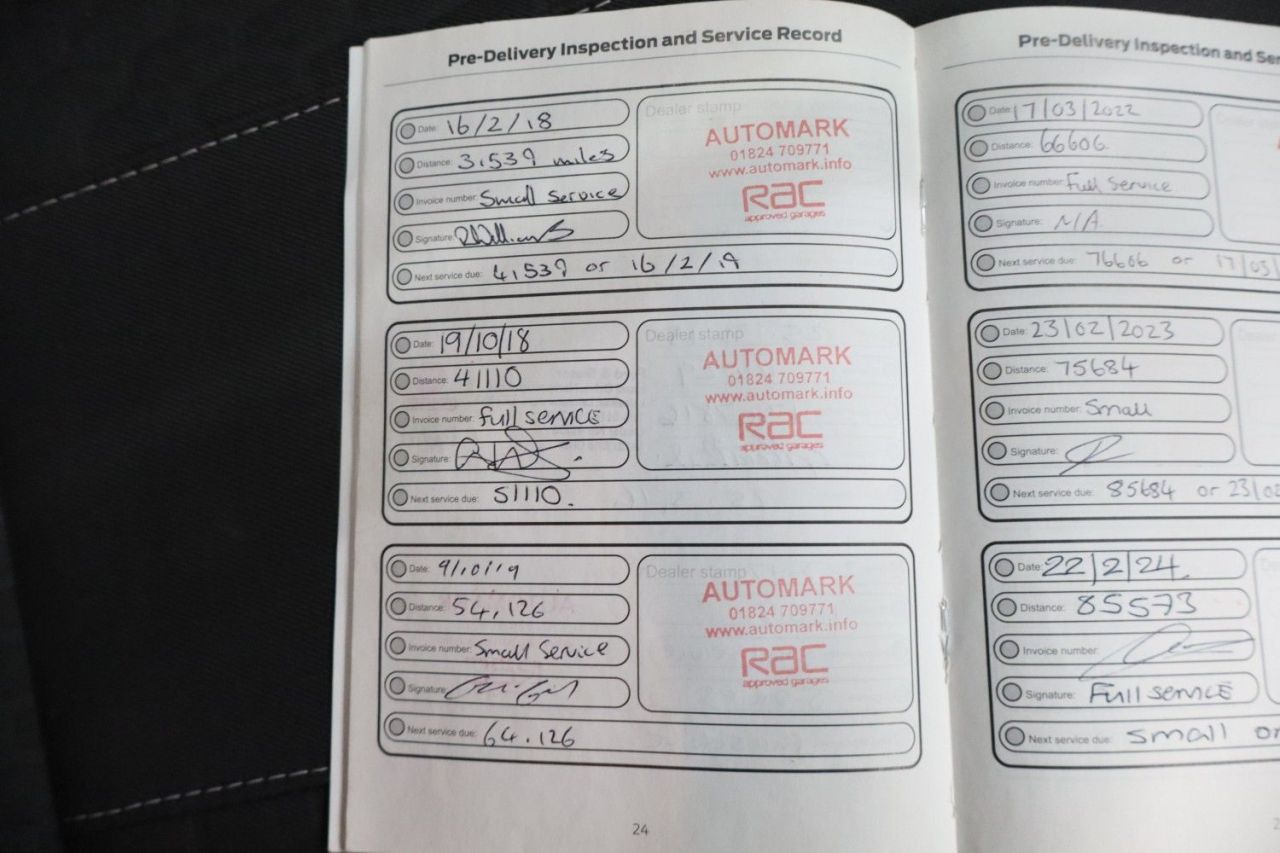 Pre-Delivery Inspection and Service Record
Date: 16/2/18
Distance: 3,539 miles
Invoice number: Small Service
Signature:
Next service due: 4,539 or 16/2/19
Dealer stamp
AUTOMARK
01824 709771
www.automark.info
Rac
approved garages
Date: 19/10/18
Distance: 41110
Invoice number: full service
Signature:
Next service due: 51110.
Dealer stamp
AUTOMARK
01824 709771
www.automark.info
Rac
approved garages
Date: 9/10/19
Distance: 54,126
Invoice number: Small Service
Signature:
Next service due: 64.126
Dealer stamp
AUTOMARK
01824 709771
www.automark.info
Rac
approved garages
24
Pre-Delivery Inspection and Ser
Date: 17/03/2022
Distance: 66606
Invoice number: Full Service
Signature: N/A
Next service due: 76606 or 17/03/
Date: 23/02/2023
Distance: 75684
Invoice number: Small
Signature:
Next service due: 85684 or 23/02
Date: 22/2/24.
Distance: 85573
Invoice number:
Signature: Full service
Next service due: small or